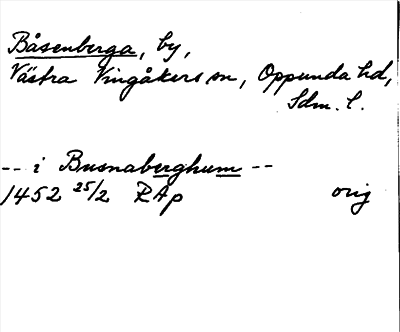 Båsenberga, by,
Västra Vingåkers sn, Oppunda hd,
Sdm. l.
-- i Busnaberghum --
1452 25/2 RAp orig